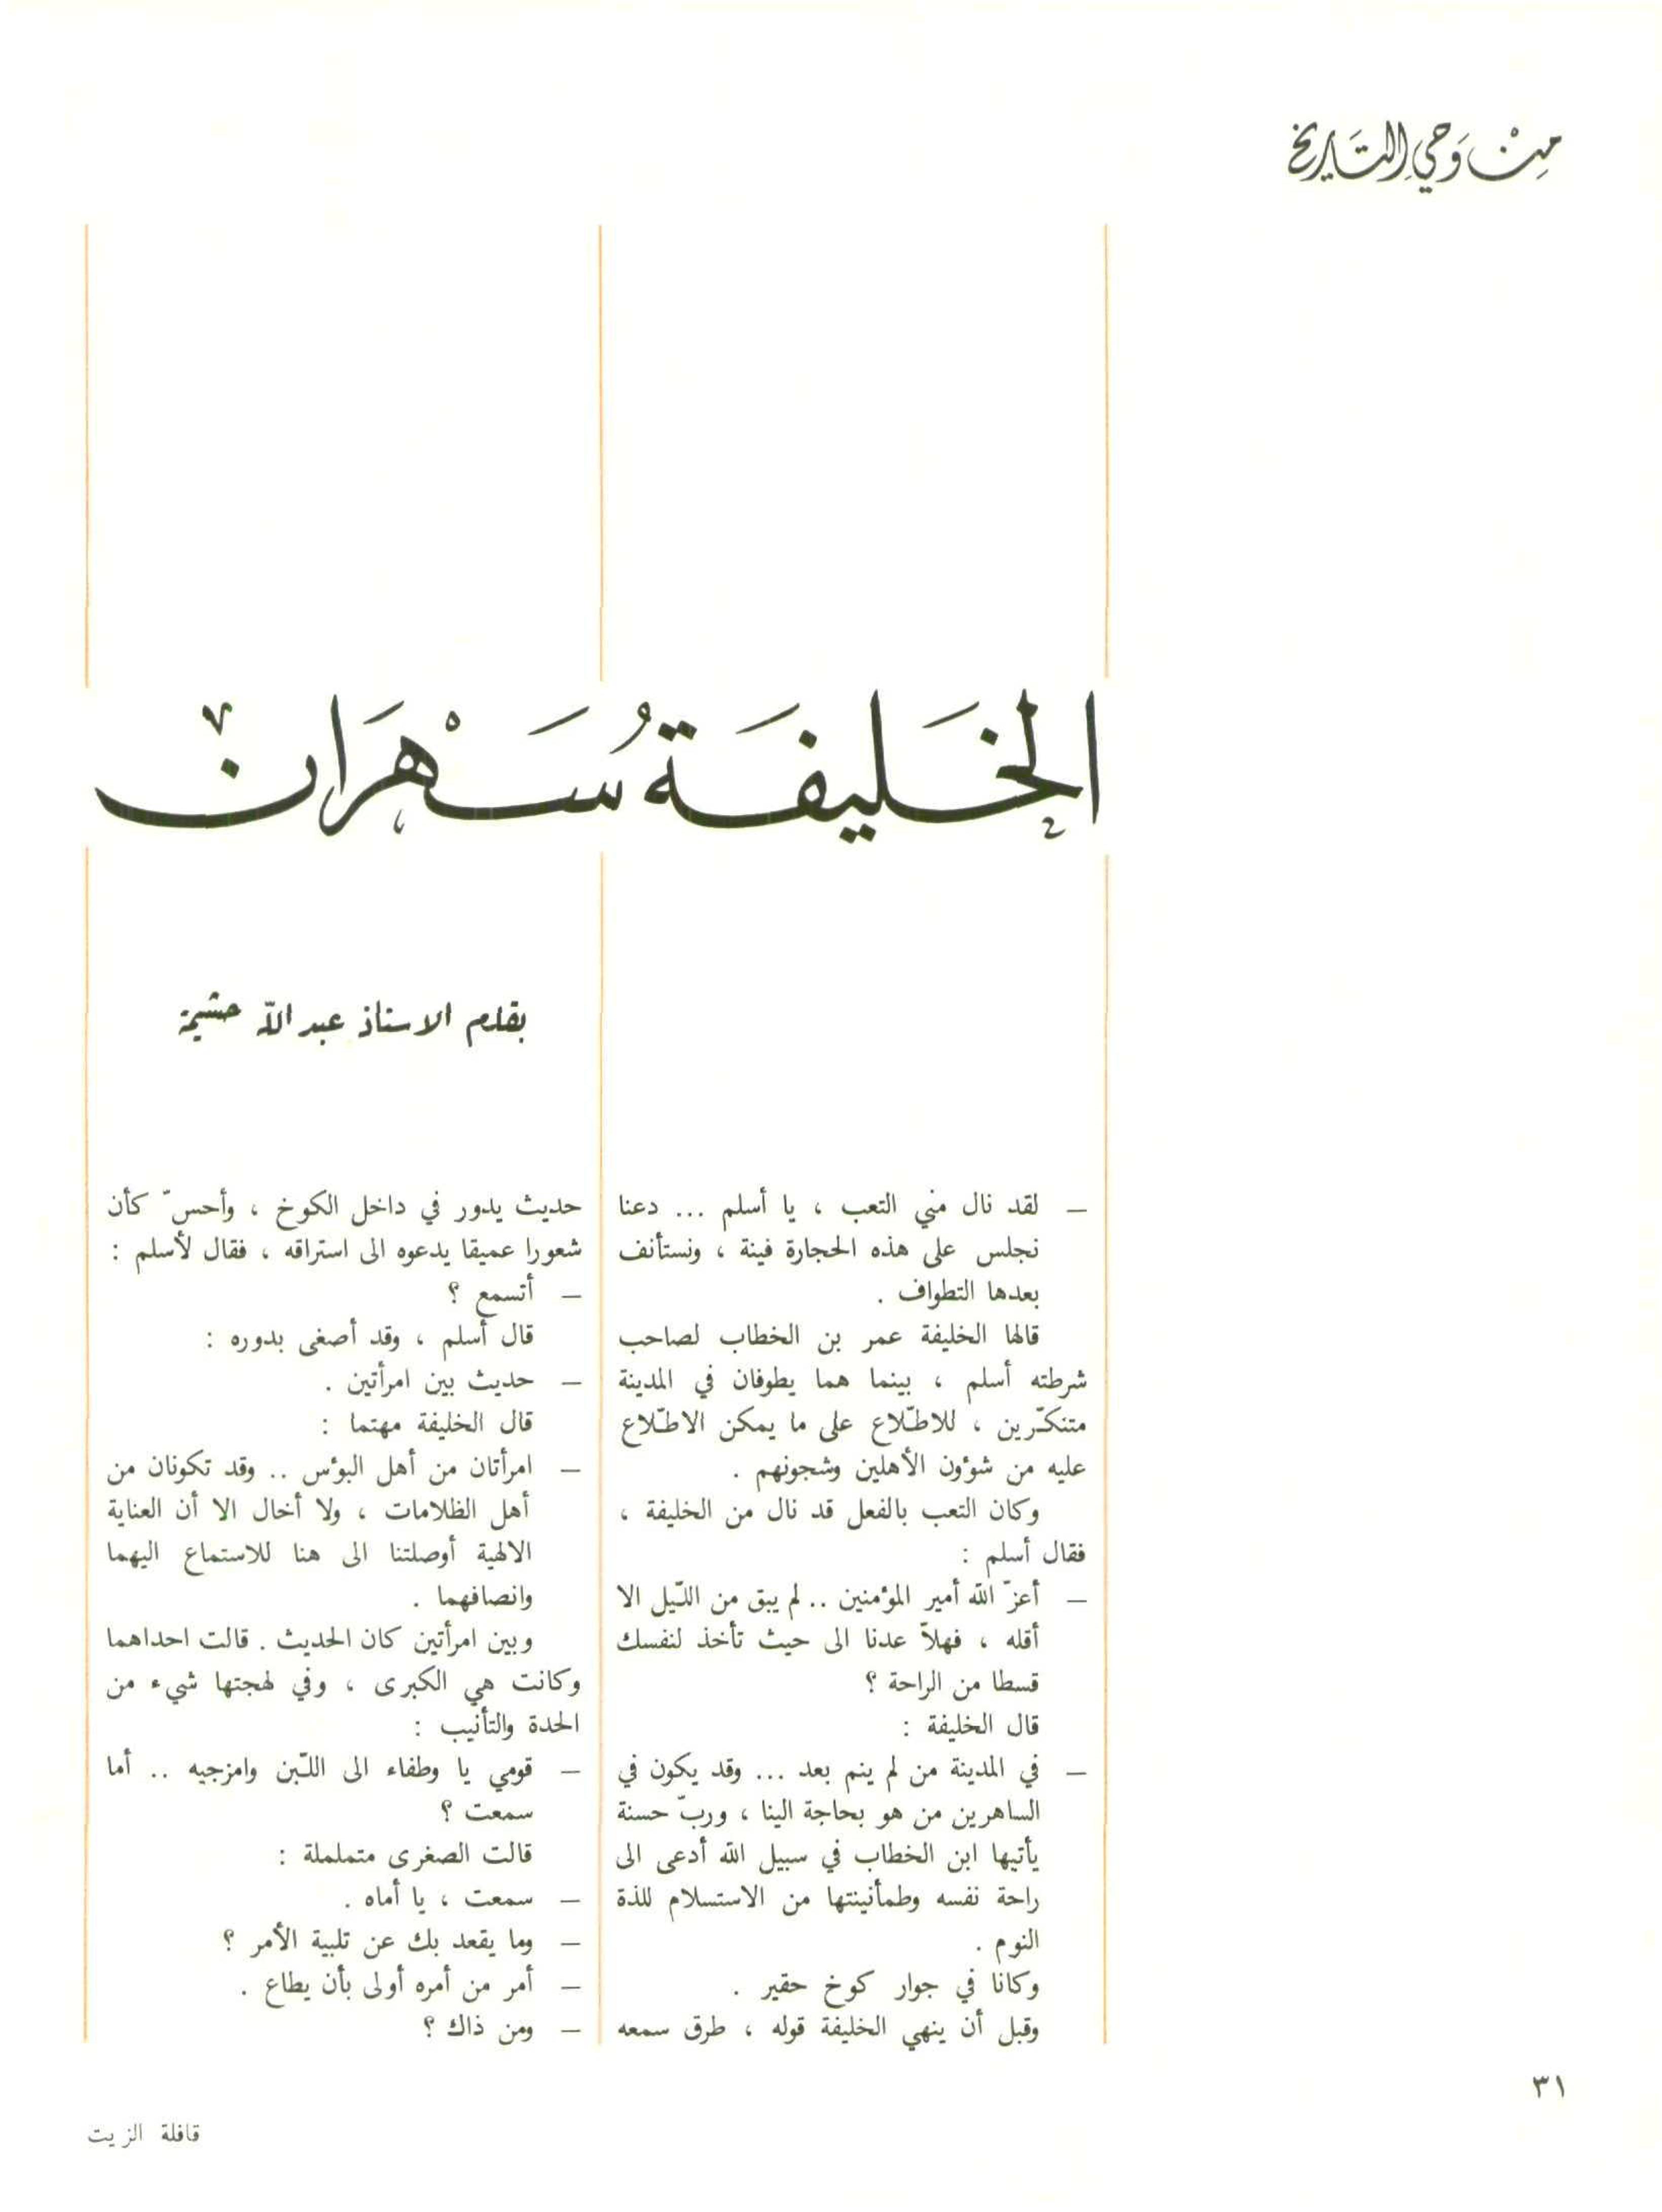 مِنْ وَحْيِ التَّارِيخ
الخَلِيفَةُ سَهْرَان
بقلم الاستاذ عبد الله حشيمة
— لقد نال مني التعب ، يا أسلم ... دعنا
نجلس على هذه الحجارة فينة ، ونستأنف
بعدها التطواف .
قالها الخليفة عمر بن الخطاب لصاحب
شرطته أسلم ، بينما هما يطوفان في المدينة
متنكّرين ، للاطّلاع على ما يمكن الاطّلاع
عليه من شؤون الأهلين وشجونهم .
وكان التعب بالفعل قد نال من الخليفة ،
فقال أسلم :
— أعزّ الله أمير المؤمنين .. لم يبق من اللّيل الا
أقله ، فهلاّ عدنا الى حيث تأخذ لنفسك
قسطا من الراحة ؟
قال الخليفة :
— في المدينة من لم ينم بعد ... وقد يكون في
الساهرين من هو بحاجة الينا ، وربّ حسنة
يأتيها ابن الخطاب في سبيل الله أدعى الى
راحة نفسه وطمأنينتها من الاستسلام للذة
النوم .
وكانا في جوار كوخ حقير .
وقبل أن ينهي الخليفة قوله ، طرق سمعه
حديث يدور في داخل الكوخ ، وأحسّ كأن
شعورا عميقا يدعوه الى استراقه ، فقال لأسلم :
— أتسمع ؟
قال أسلم ، وقد أصغى بدوره :
— حديث بين امرأتين .
قال الخليفة مهتما :
— امرأتان من أهل البؤس .. وقد تكونان من
أهل الظلامات ، ولا أخال الا أن العناية
الالهية أوصلتنا الى هنا للاستماع اليهما
وانصافهما .
وبين امرأتين كان الحديث . قالت احداهما
وكانت هي الكبرى ، وفي لهجتها شيء من
الحدة والتأنيب :
— قومي يا وطفاء الى اللّبن وامزجيه .. أما
سمعت ؟
قالت الصغرى متململة :
— سمعت ، يا أماه .
— وما يقعد بك عن تلبية الأمر ؟
— أمر من أمره أولى بأن يطاع .
— ومن ذاك ؟
٣١
قافلة الزيت